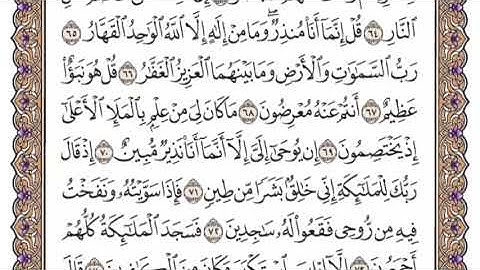 ٱلنَّارِ ٦٤ قُلْ إِنَّمَآ أَنَا۠ مُنذِرٌ ۖ وَمَا مِنْ إِلَٰهٍ إِلَّا ٱللَّهُ ٱلْوَٰحِدُ ٱلْقَهَّارُ ٦٥
رَبُّ ٱلسَّمَٰوَٰتِ وَٱلْأَرْضِ وَمَا بَيْنَهُمَا ٱلْعَزِيزُ ٱلْغَفَّٰرُ ٦٦ قُلْ هُوَ نَبَؤٌا۟
عَظِيمٌ ٦٧ أَنتُمْ عَنْهُ مُعْرِضُونَ ٦٨ مَا كَانَ لِىَ مِنْ عِلْمٍۭ بِٱلْمَلَإِ ٱلْأَعْلَىٰٓ
إِذْ يَخْتَصِمُونَ ٦٩ إِن يُوحَىٰٓ إِلَىَّ إِلَّآ أَنَّمَآ أَنَا۠ نَذِيرٌ مُّبِينٌ ٧٠ إِذْ قَالَ
رَبُّكَ لِلْمَلَٰٓئِكَةِ إِنِّى خَٰلِقٌۢ بَشَرًا مِّن طِينٍ ٧١ فَإِذَا سَوَّيْتُهُۥ وَنَفَخْتُ
فِيهِ مِن رُّوحِى فَقَعُوا۟ لَهُۥ سَٰجِدِينَ ٧٢ فَسَجَدَ ٱلْمَلَٰٓئِكَةُ كُلُّهُمْ
أَجْمَعُونَ ٧٣ إِلَّآ إِبْلِيسَ ٱسْتَكْبَرَ وَكَانَ مِنَ ٱلْكَٰفِرِينَ ٧٤ قَالَ